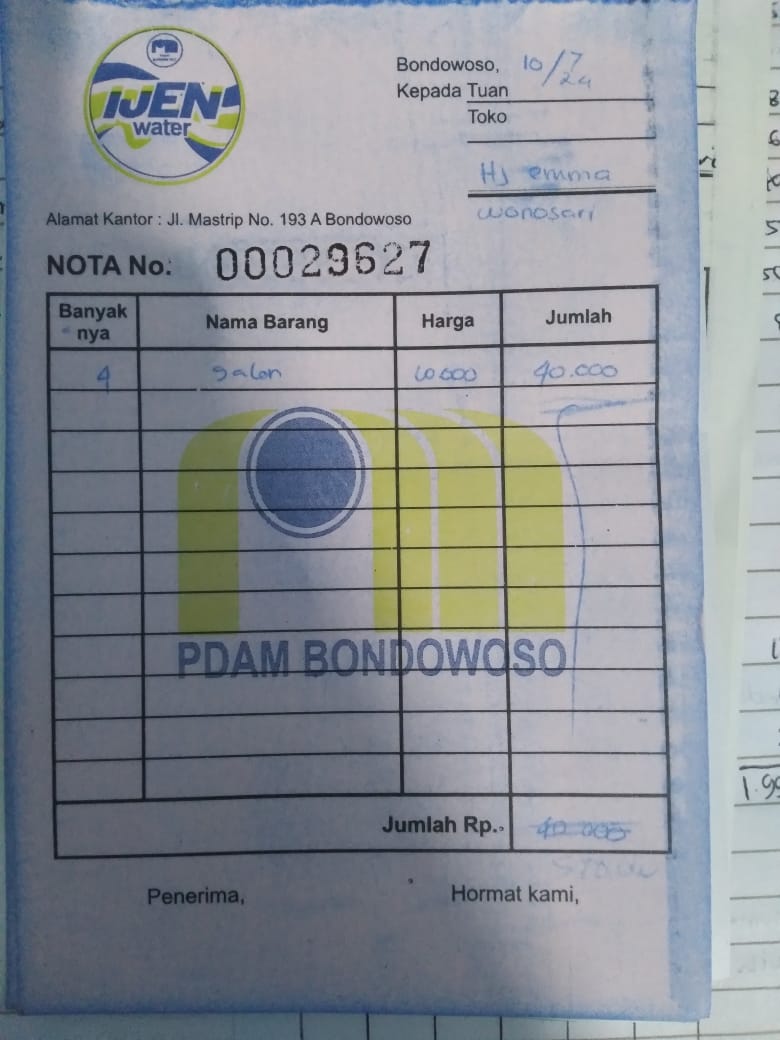 IJEN
water
Bondowoso, 10/7
24
Kepada Tuan
Toko
Hj emma
wonosari
Alamat Kantor : Jl. Mastrip No. 193 A Bondowoso
NOTA No: 00029627
Banyak nya Nama Barang Harga Jumlah
4 galon 10.000 40.000
PDAM BONDOWOSO
Jumlah Rp. 40 000
Penerima, Hormat kami,